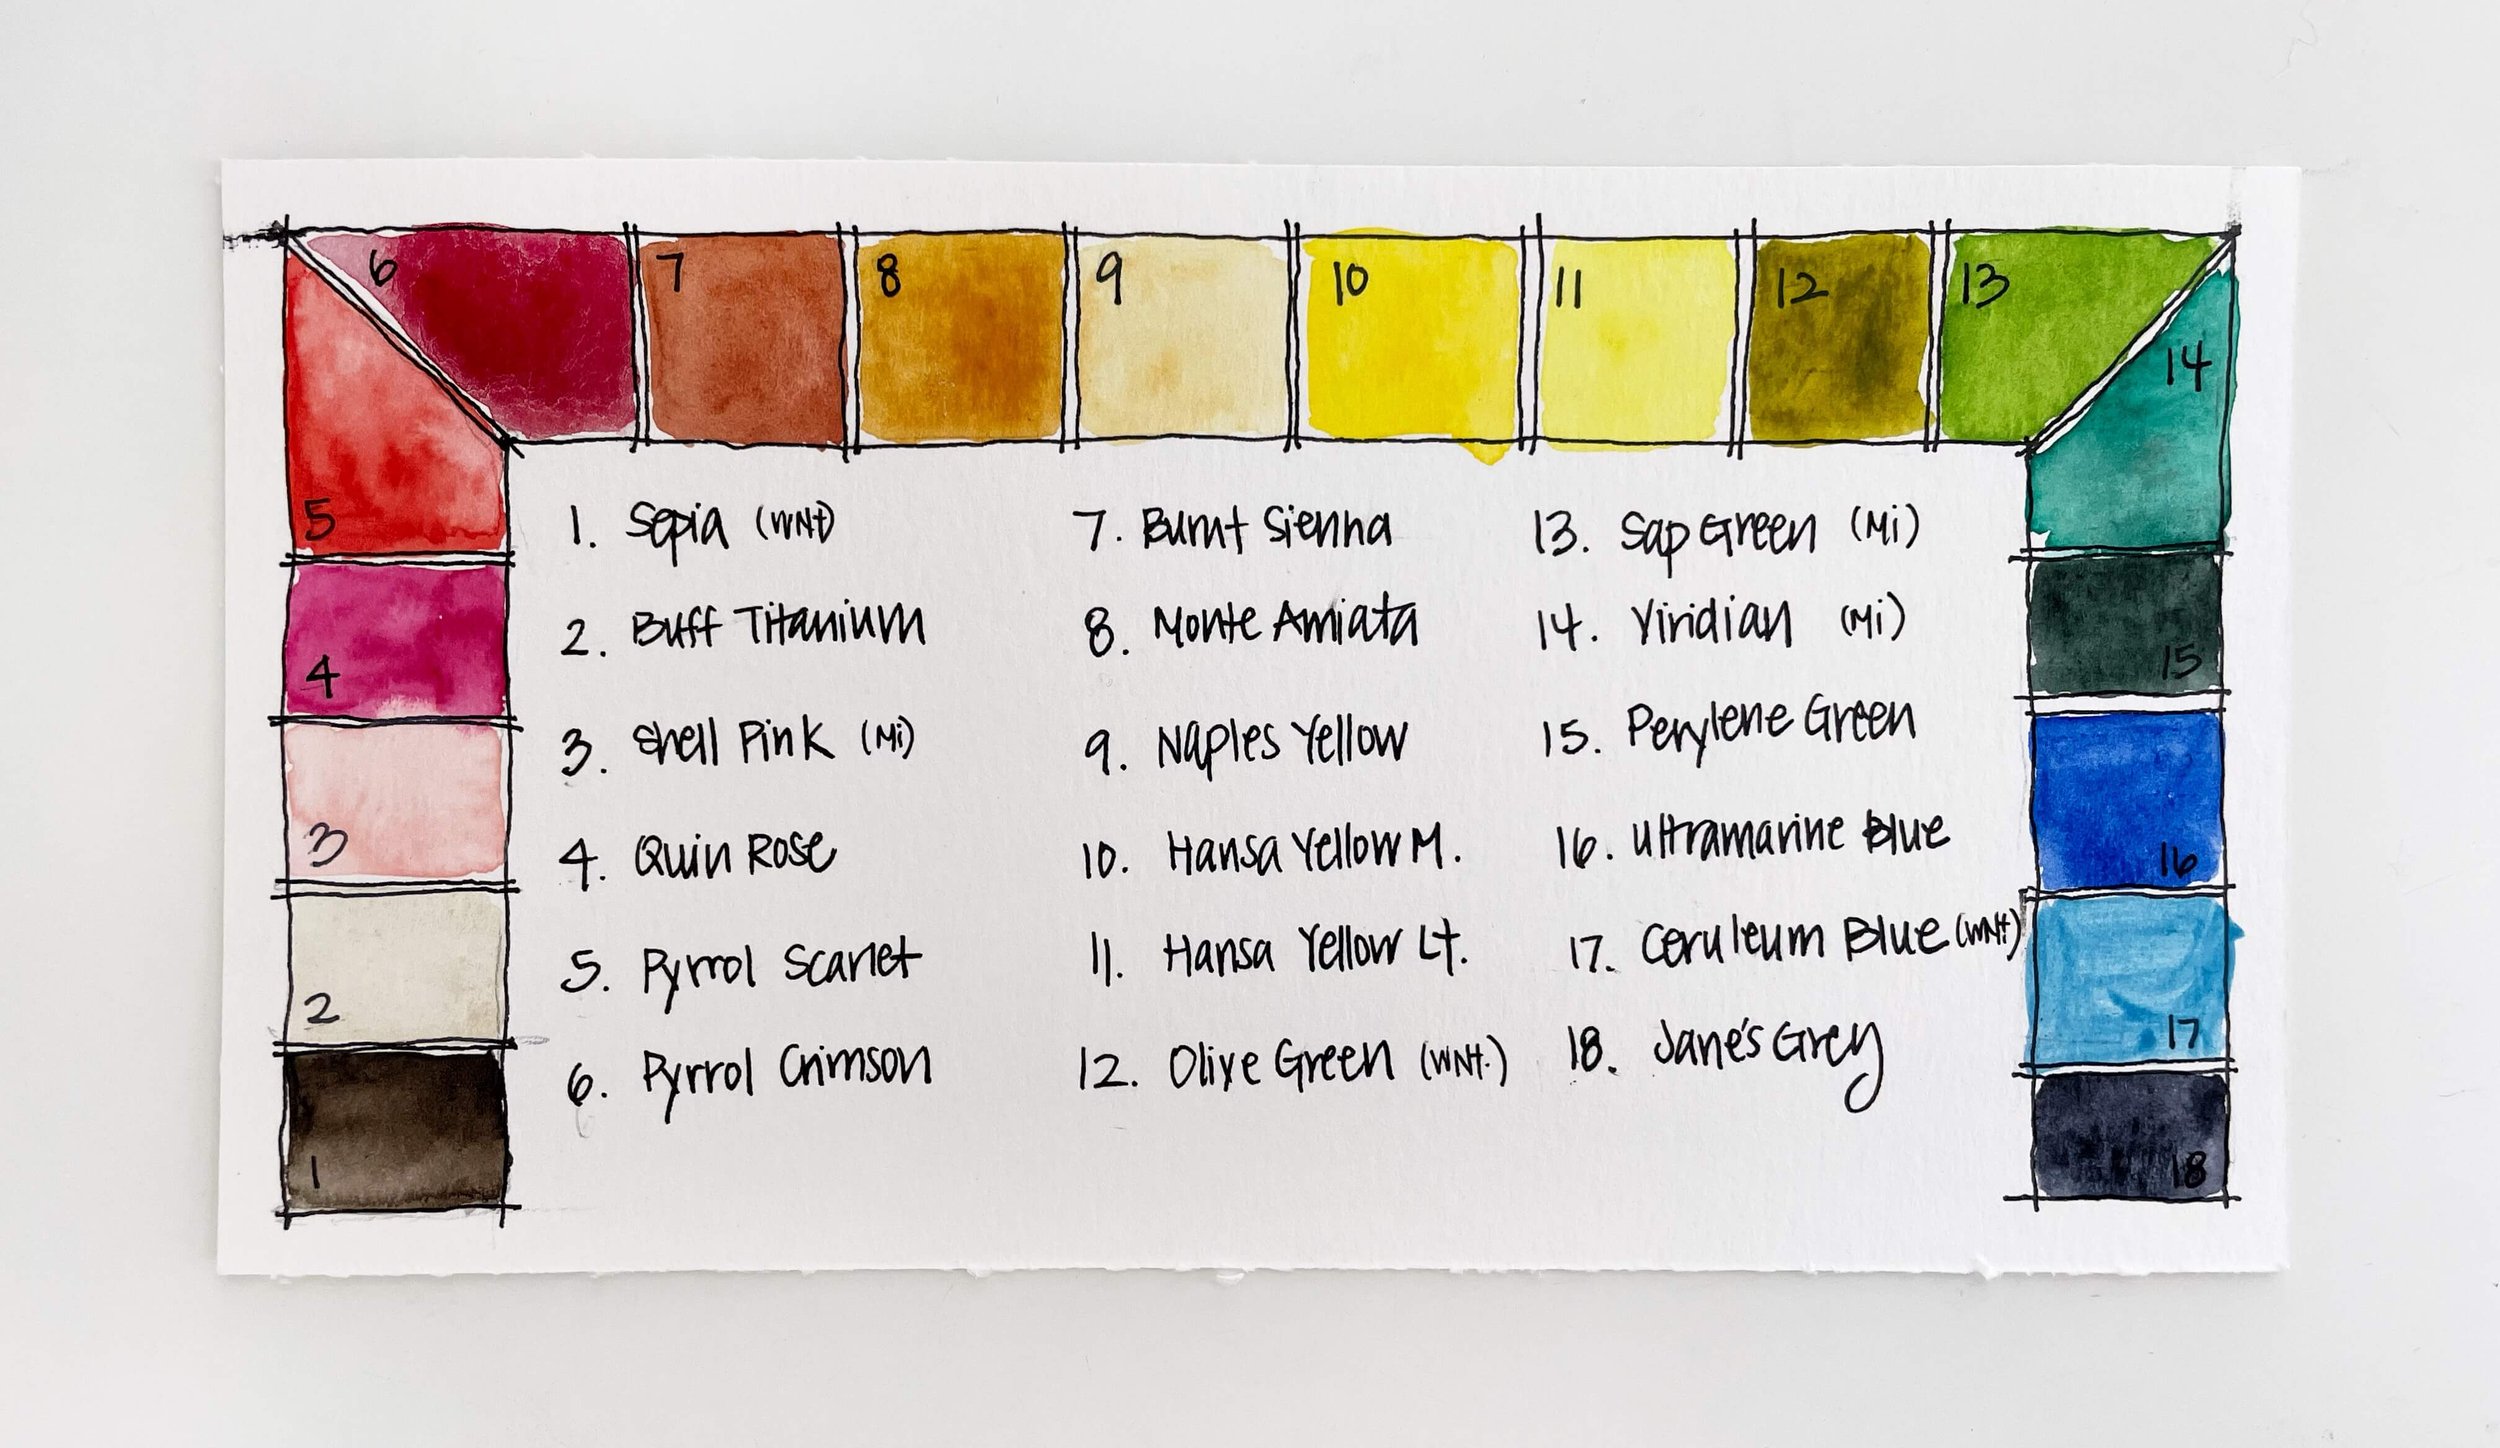 6 7 8 9 10 11 12 13
14
5
4
3
2
1
15
16
17
18
1. Sepia (WNt)
2. Buff Titanium
3. Shell Pink (Mi)
4. Quin Rose
5. Pyrrol Scarlet
6. Pyrrol Crimson
7. Burnt Sienna
8. Monte Amiata
9. Naples Yellow
10. Hansa Yellow M.
11. Hansa Yellow Lt.
12. Olive Green (WNt.)
13. Sap Green (Mi)
14. Viridian (Mi)
15. Perylene Green
16. Ultramarine Blue
17. Ceruleum Blue (WNt)
18. Jane's Grey